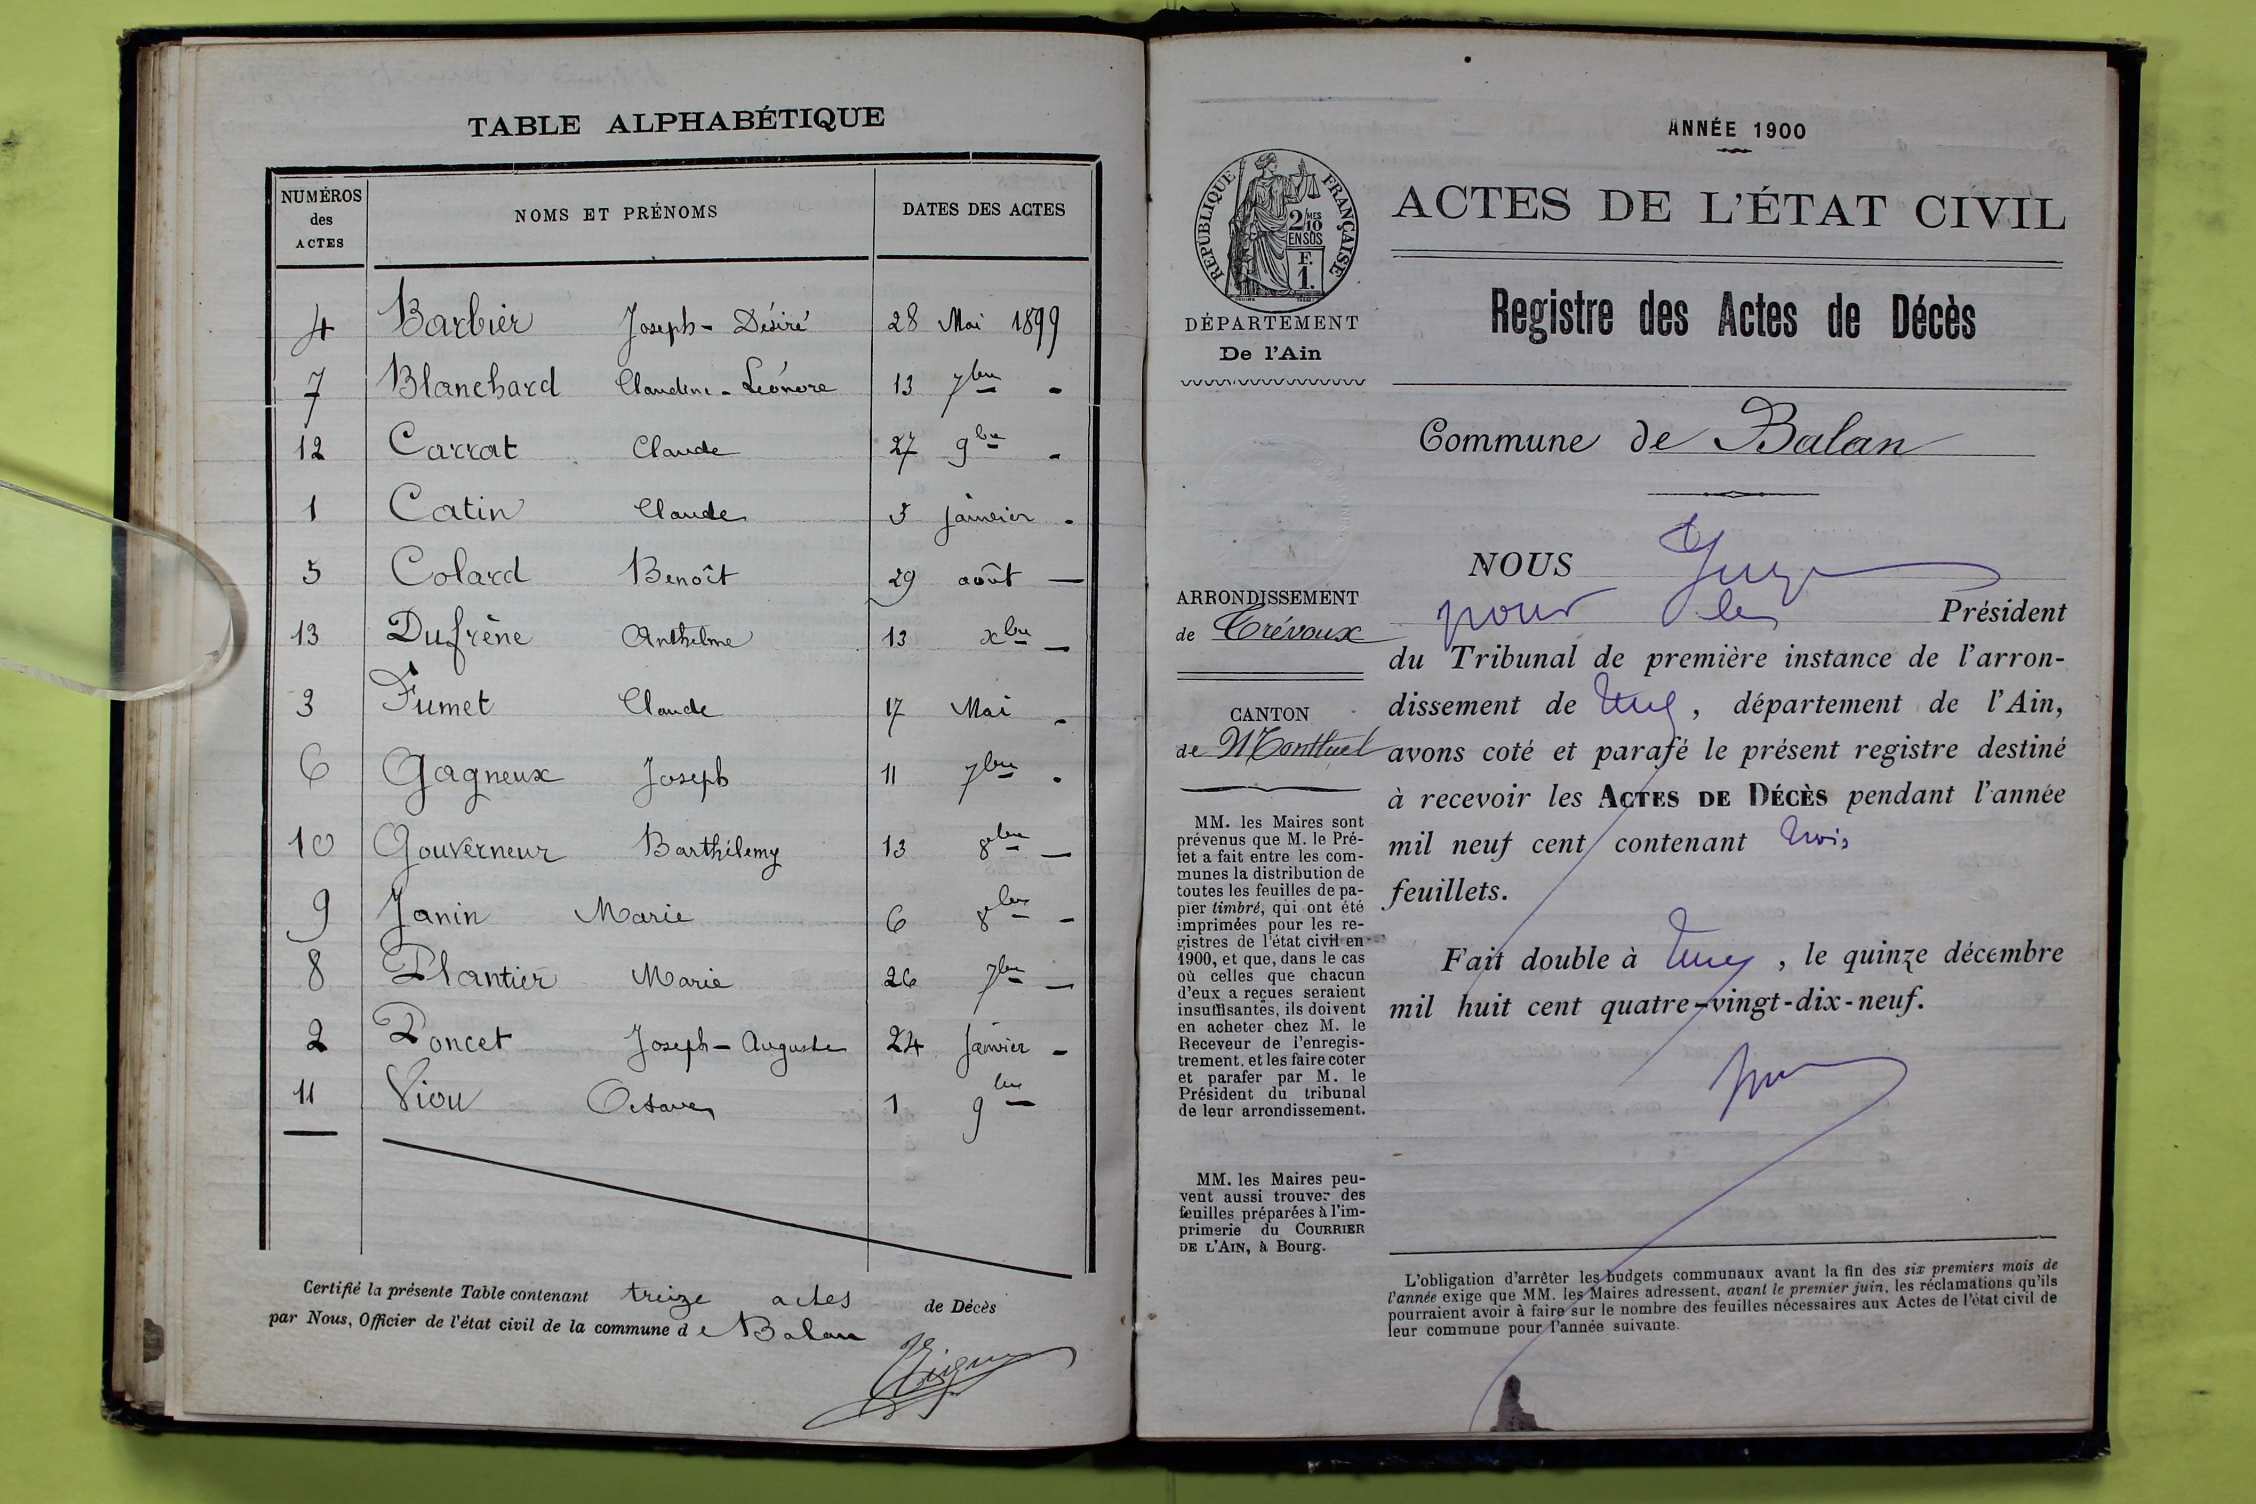 TABLE ALPHABÉTIQUE
NUMÉROS des ACTES NOMS ET PRÉNOMS DATES DES ACTES
4 Barbier Joseph-Désiré 28 Mai 1899
7 Blanchard Claudine-Léonore 13 7bre -
12 Carrat Claude 27 9bre -
1 Catin Claude 5 janvier -
5 Colard Benoît 29 août -
13 Dufrêne Anthelme 13 xbre -
3 Fumet Claude 17 Mai -
6 Gagneux Joseph 11 7bre -
10 Gouverneur Barthélemy 13 8bre -
9 Janin Marie 6 8bre -
8 Plantier Marie 26 7bre -
2 Poncet Joseph-Auguste 24 janvier -
11 Viou Octave 1 9bre
Certifié la présente Table contenant treize actes de Décès
par Nous, Officier de l'état civil de la commune de Balan
ANNÉE 1900
RÉPUBLIQUE FRANÇAISE
2/10 MES
EN SUS
F.
1.
DÉPARTEMENT
De l'Ain
ARRONDISSEMENT
de Trévoux
CANTON
de Montluel
MM. les Maires sont
prévenus que M. le Pré-
fet a fait entre les com-
munes la distribution de
toutes les feuilles de pa-
pier timbré, qui ont été
imprimées pour les re-
gistres de l'état civil en
1900, et que, dans le cas
où celles que chacun
d'eux a reçues seraient
insuffisantes, ils doivent
en acheter chez M. le
Receveur de l'enregis-
trement, et les faire coter
et parafer par M. le
Président du tribunal
de leur arrondissement.
MM. les Maires peu-
vent aussi trouver des
feuilles préparées à l'im-
primerie du COURRIER
DE L'AIN, à Bourg.
ACTES DE L'ÉTAT CIVIL
Registre des Actes de Décès
Commune de Balan
NOUS Juge
pour le Président
du Tribunal de première instance de l'arron-
dissement de , département de l'Ain,
avons coté et parafé le présent registre destiné
à recevoir les ACTES DE DÉCÈS pendant l'année
mil neuf cent contenant trois
feuillets.
Fait double à , le quinze décembre
mil huit cent quatre-vingt-dix-neuf.
L'obligation d'arrêter les budgets communaux avant la fin des six premiers mois de
l'année exige que MM. les Maires adressent, avant le premier juin, les réclamations qu'ils
pourraient avoir à faire sur le nombre des feuilles nécessaires aux Actes de l'état civil de
leur commune pour l'année suivante.